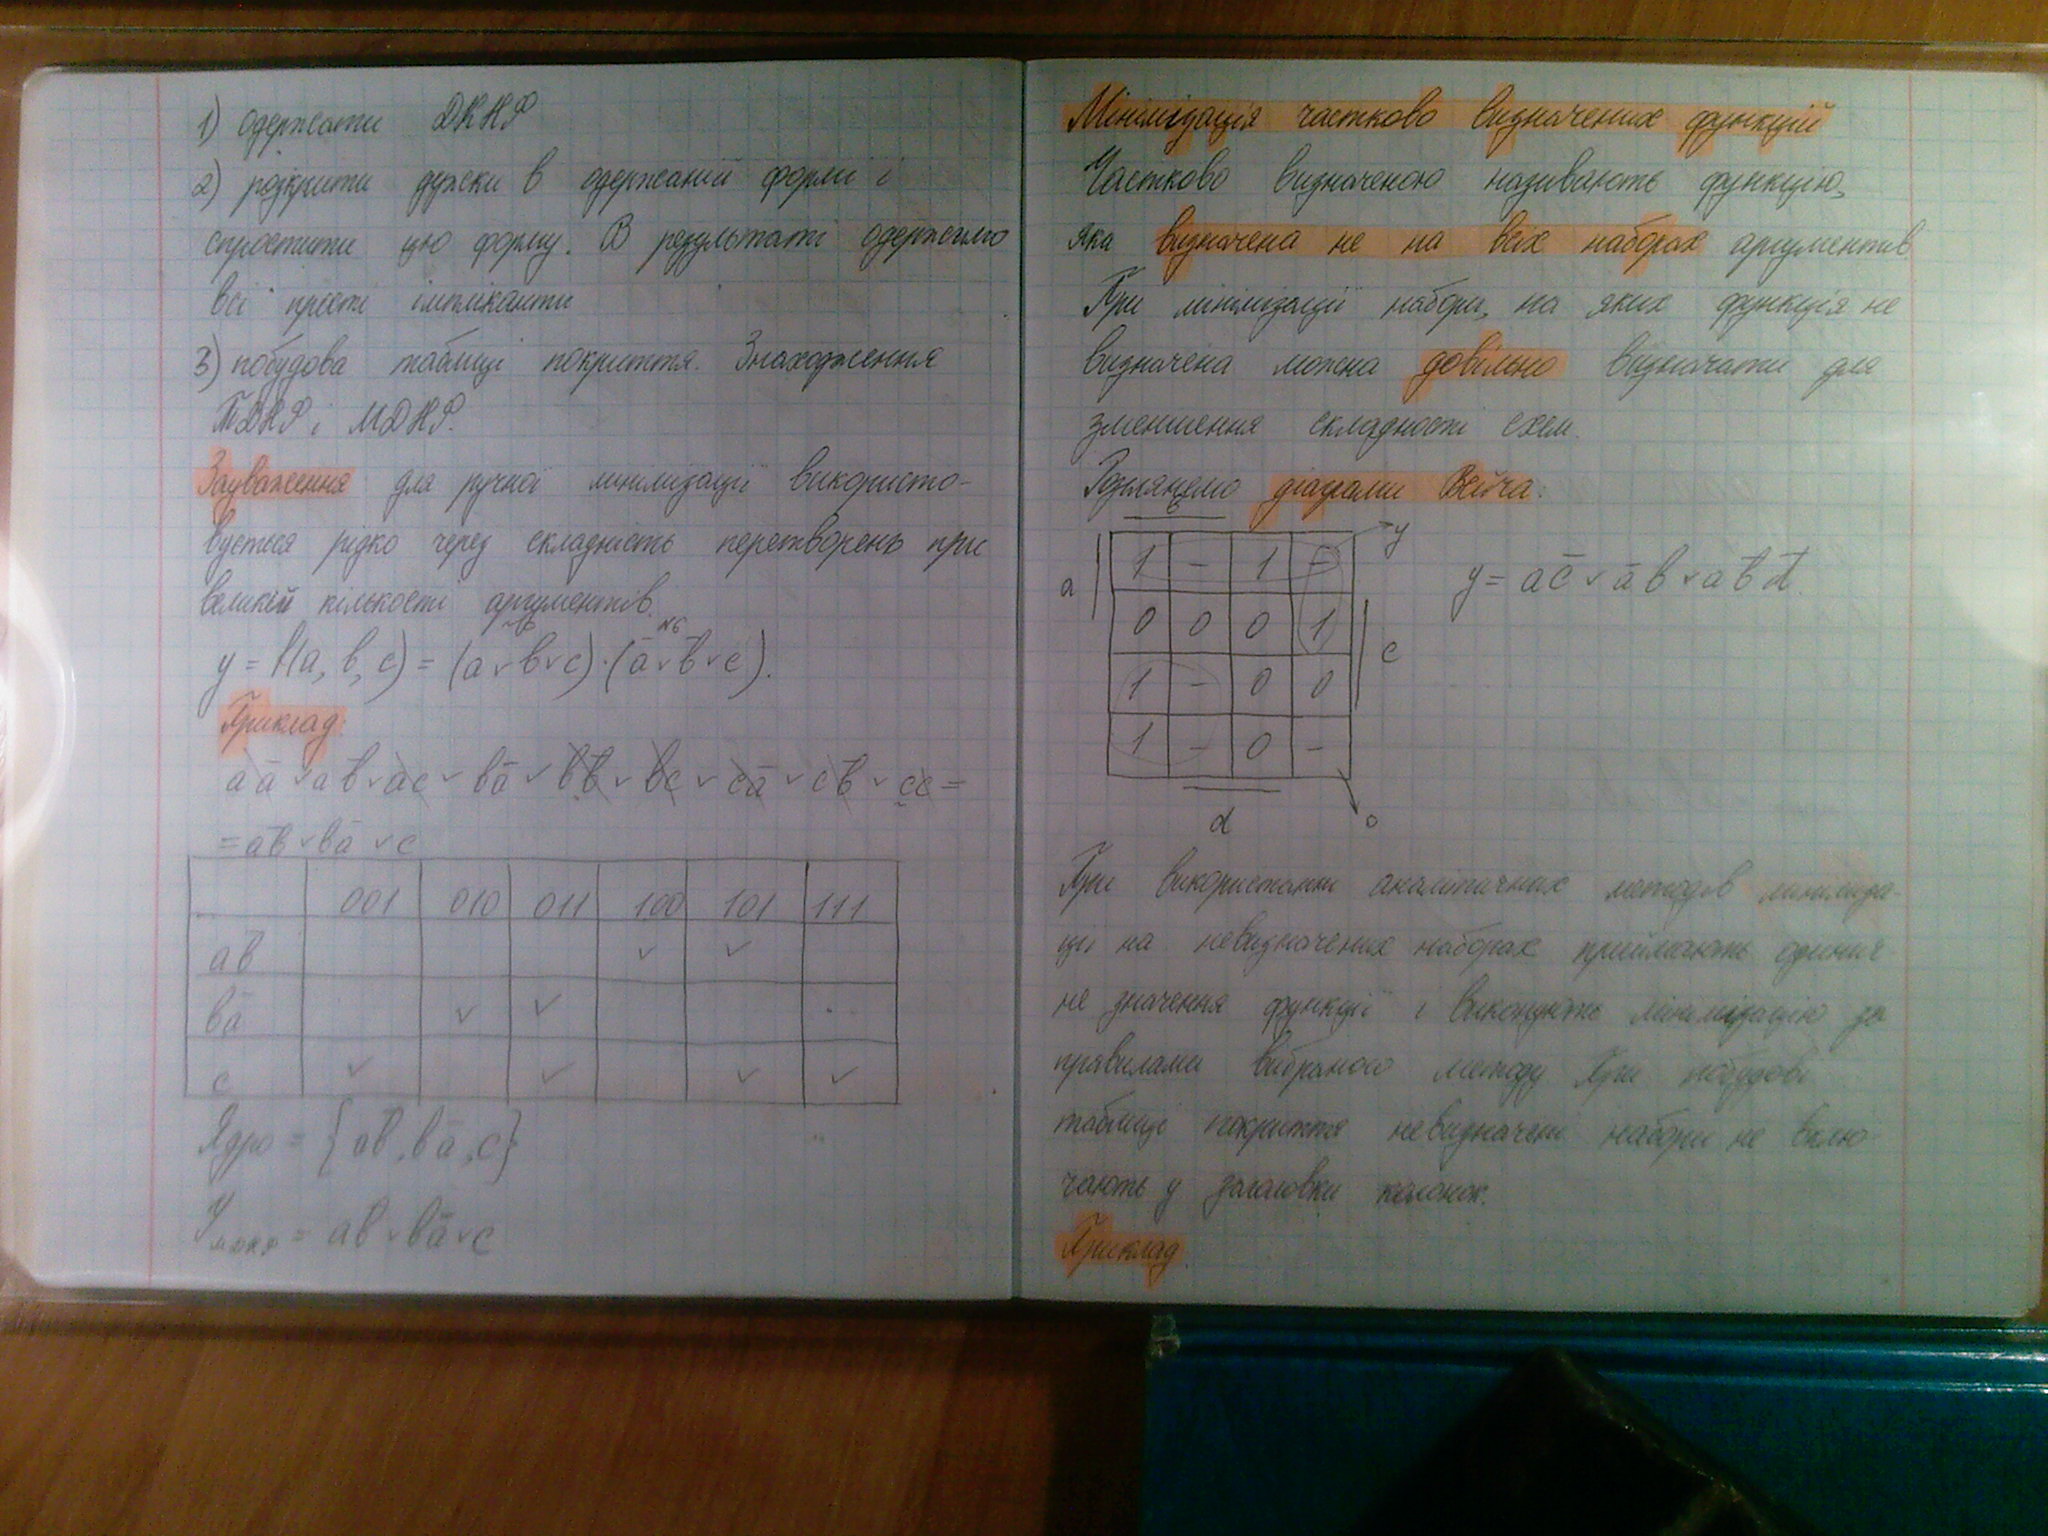 1) одержати ДКНФ
2) розкрити дужки в одержаній формі і
спростити цю форму. В результаті одержимо
всі прості імпліканти
3) побудова таблиці покриття. Знаходження
ТДНФ і МДНФ.
Зауваження для ручної мінімізації використо-
вується рідко через складність перетворень при
великій кількості аргументів.
y = f(a, b, c) = (a ∨ b ∨ c) · (a̅ ∨ b̅ ∨ c).
Приклад:
aa̅ ∨ ab̅ ∨ ac ∨ ba̅ ∨ bb̅ ∨ bc ∨ ca̅ ∨ cb̅ ∨ cc =
= ab̅ ∨ ba̅ ∨ c
001 010 011 100 101 111
ab̅ ✓ ✓
ba̅ ✓ ✓
c ✓ ✓ ✓ ✓
Ядро = {ab̅, ba̅, c}
Yмднф = ab̅ ∨ ba̅ ∨ c
Мінімізація частково визначених функцій
Частково визначеною називають функцію,
яка визначена не на всіх наборах аргументів
При мінімізації набори, на яких функція не
визначена можна довільно визначати для
зменшення складності схем.
Розглянемо діаграми Вейча:
y
1 – 1 –
a
0 0 0 1
c
1 – 0 0
1 – 0 –
d
y = ac̅ ∨ a̅b ∨ ab̅d̅.
При використанні аналітичних методів мініміза-
ції на невизначених наборах приймають одинич
не значення функції і виконують мінімізацію за
правилами вибраного методу При побудові
таблиці покриття невизначені набори не вклю-
чають у заголовки колонок.
Приклад